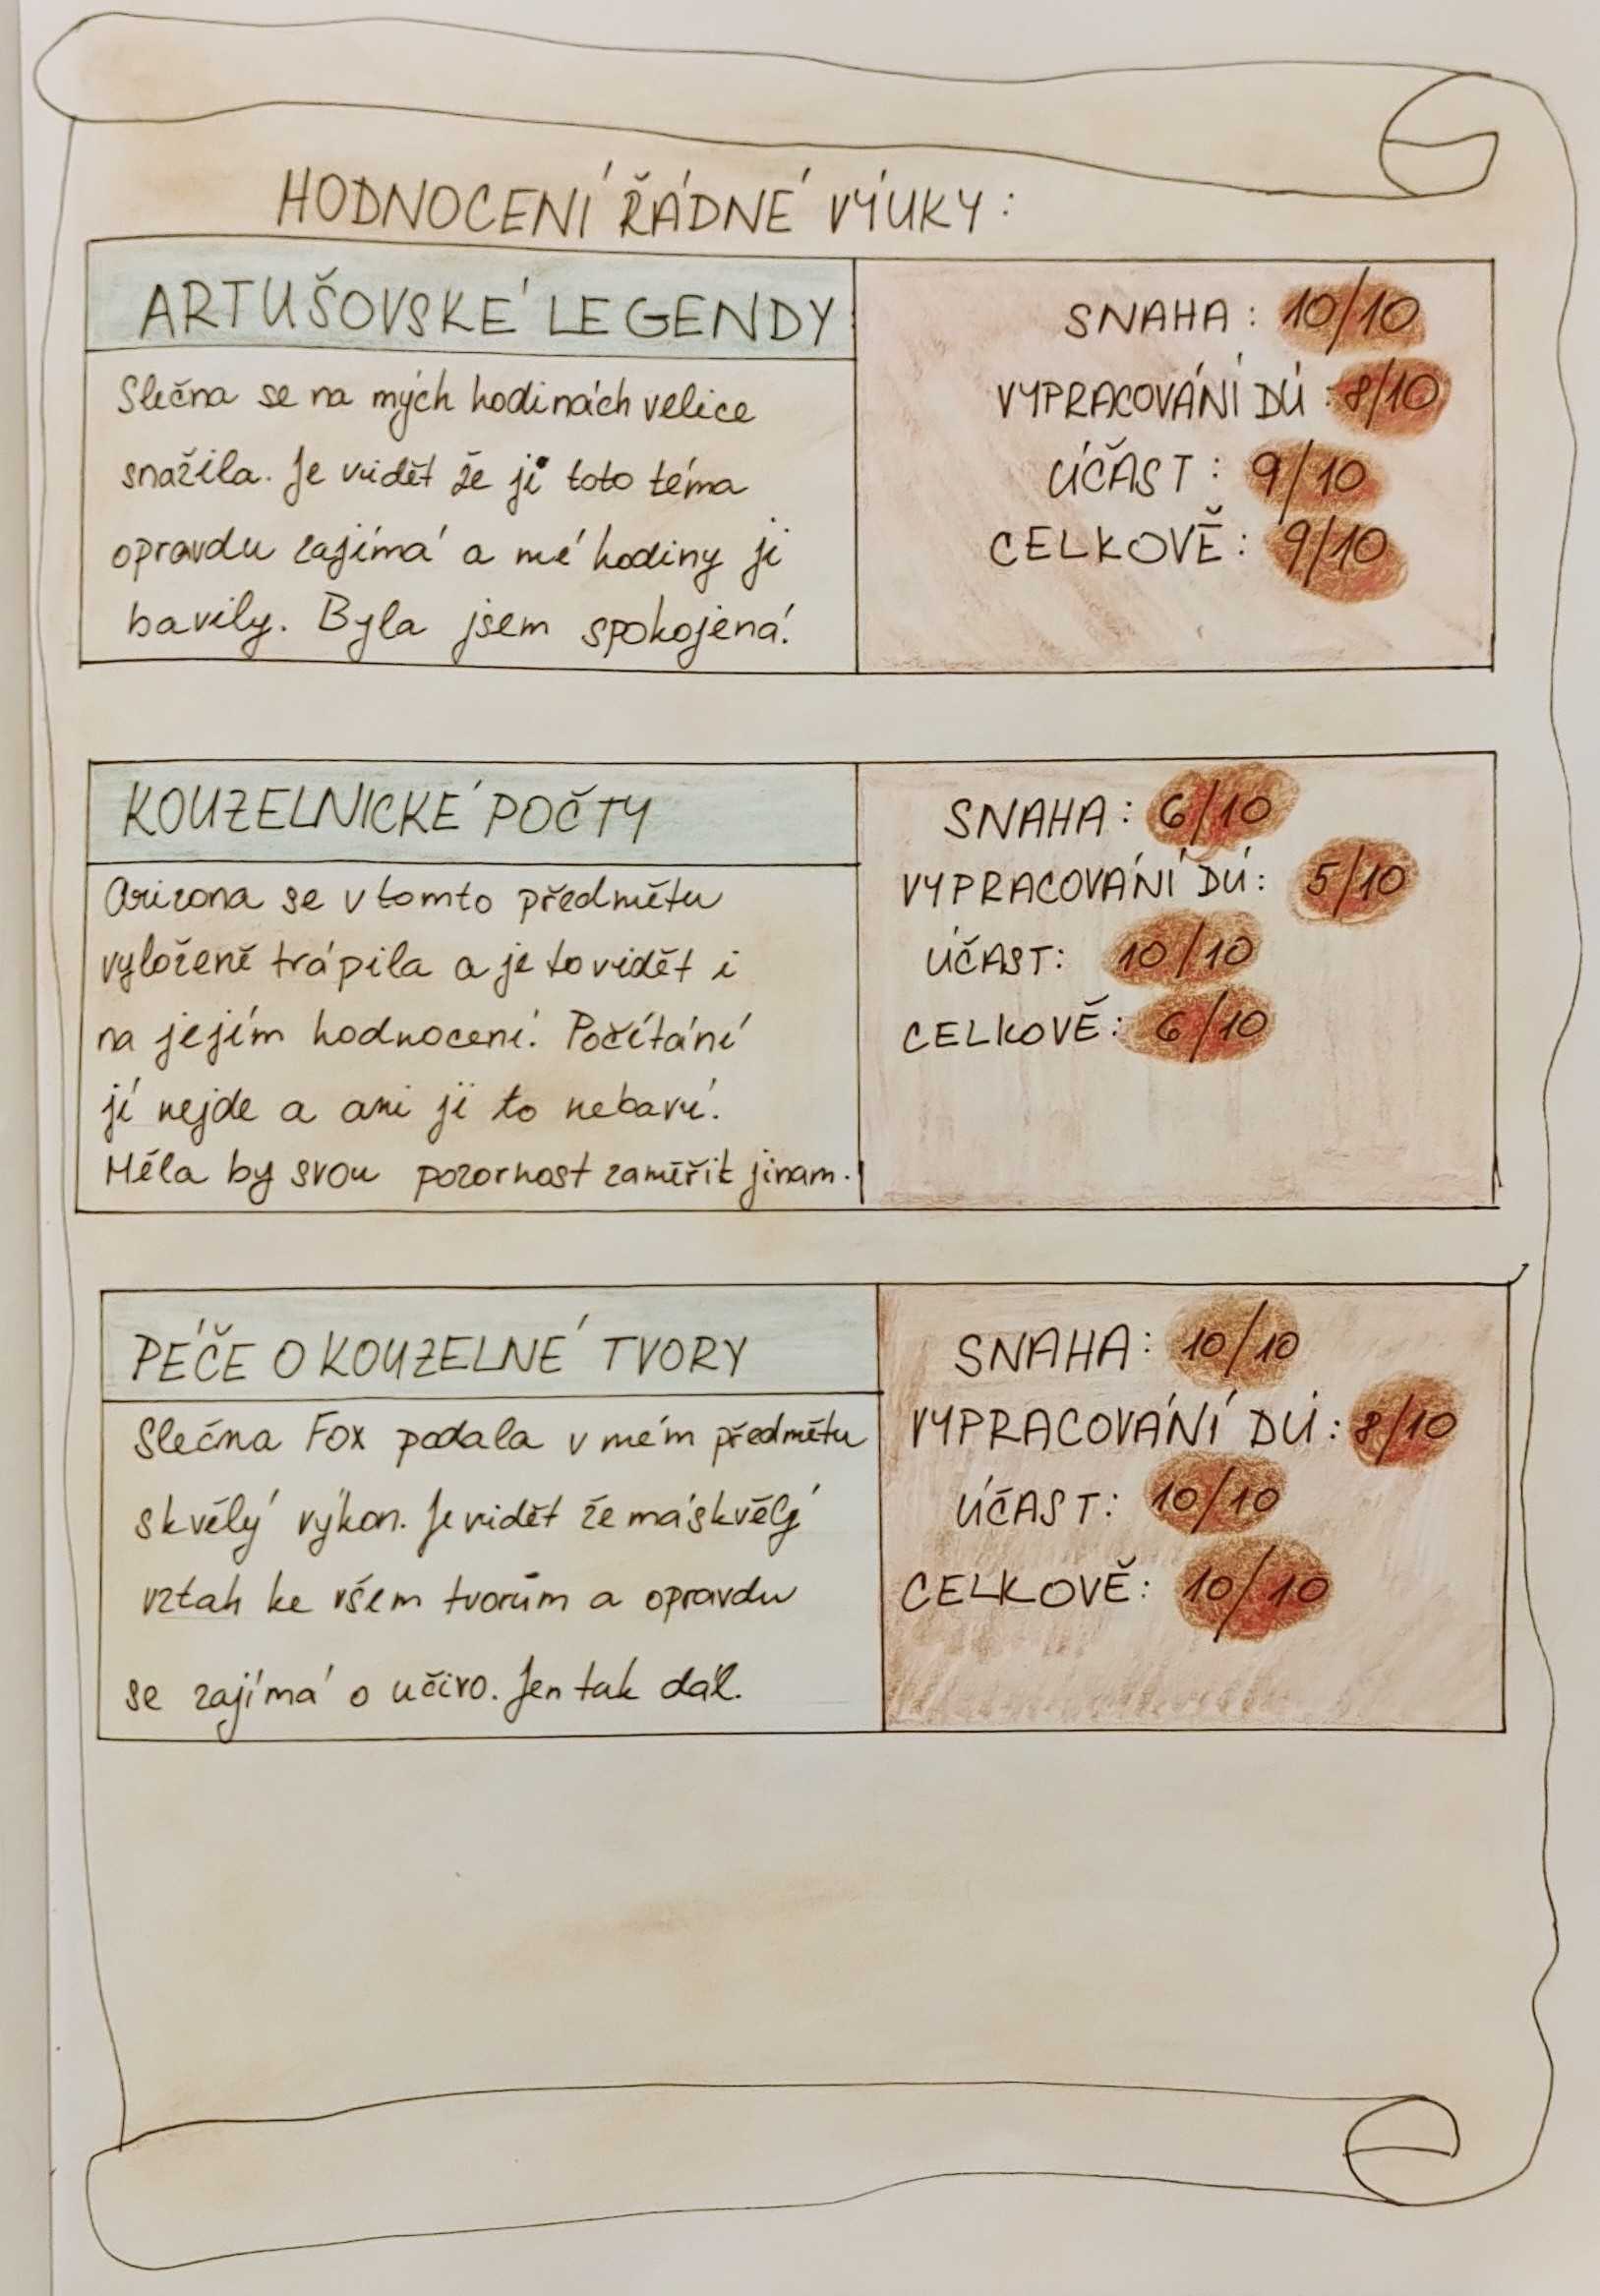 HODNOCENÍ ŘÁDNÉ VÝUKY:
ARTUŠOVSKÉ LEGENDY
Slečna se na mých hodinách velice
snažila. Je vidět že ji toto téma
opravdu zajímá a mé hodiny ji
bavily. Byla jsem spokojená.
SNAHA: 10/10
VYPRACOVÁNÍ DÚ: 8/10
ÚČAST: 9/10
CELKOVĚ: 9/10
KOUZELNICKÉ POČTY
Arizona se v tomto předmětu
vyloženě trápila a je to vidět i
na jejím hodnocení. Počítání
jí nejde a ani ji to nebaví.
Měla by svou pozornost zaměřit jinam.
SNAHA: 6/10
VYPRACOVÁNÍ DÚ: 5/10
ÚČAST: 10/10
CELKOVĚ: 6/10
PÉČE O KOUZELNÉ TVORY
Slečna Fox podala v mém předmětu
skvělý výkon. Je vidět že má skvělý
vztah ke všem tvorům a opravdu
se zajímá o učivo. Jen tak dál.
SNAHA: 10/10
VYPRACOVÁNÍ DÚ: 8/10
ÚČAST: 10/10
CELKOVĚ: 10/10